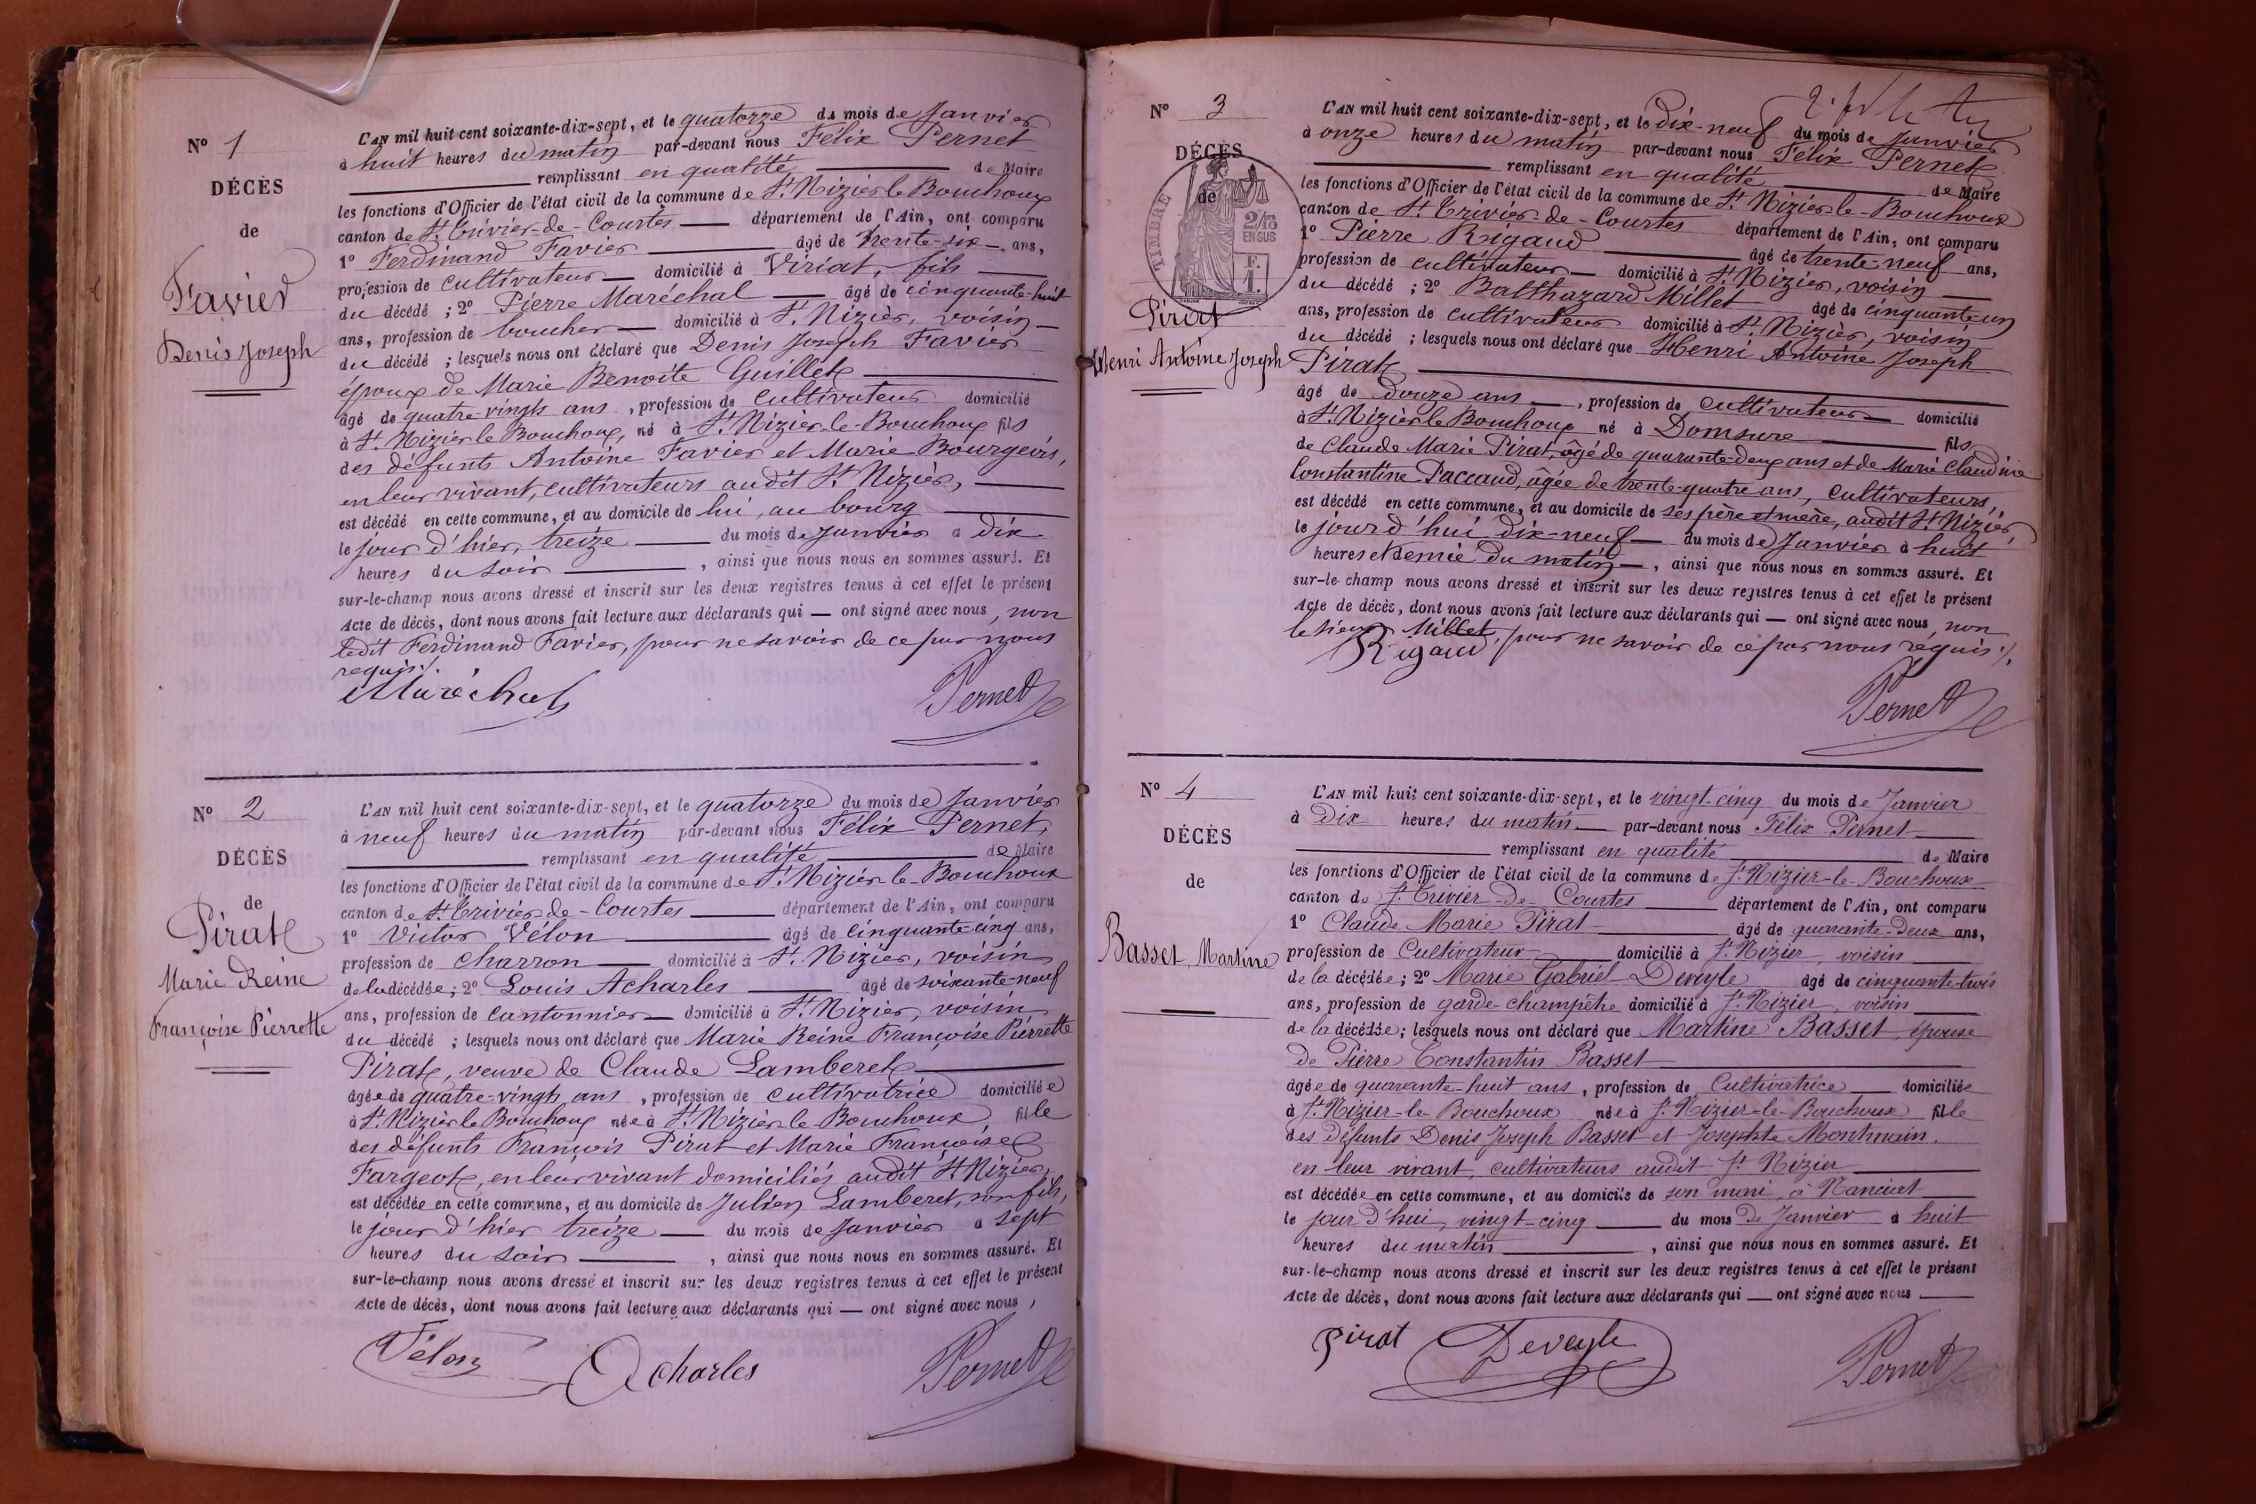 N° 1
DÉCÈS
de
Favier
Denis Joseph
L'AN mil huit cent soixante-dix-sept, et le quatorze du mois de Janvier
à huit heures du matin par-devant nous Félix Pernet
remplissant en qualité de Maire
les fonctions d'Officier de l'état civil de la commune de St Nizier le Bouchoux
canton de St Trivier-de-Courtes département de l'Ain, ont comparu
1° Ferdinand Favier âgé de trente-six ans,
profession de cultivateur domicilié à Viriat, fils
du décédé ; 2° Pierre Maréchal âgé de cinquante-huit
ans, profession de boucher domicilié à St Nizier, voisin
du décédé ; lesquels nous ont déclaré que Denis Joseph Favier
époux de Marie Benoite Guillet
âgé de quatre-vingts ans, profession de cultivateur domicilié
à St Nizier le Bouchoux, né à St Nizier-le-Bouchoux fils
des défunts Antoine Favier et Marie Bourgeois,
en leur vivant, cultivateurs audit St Nizier,
est décédé en cette commune, et au domicile de lui, au bourg
le jour d'hier, treize du mois de Janvier à dix
heures du soir, ainsi que nous nous en sommes assuré. Et
sur-le-champ nous avons dressé et inscrit sur les deux registres tenus à cet effet le présent
Acte de décès, dont nous avons fait lecture aux déclarants qui — ont signé avec nous, non
ledit Ferdinand Favier, pour ne savoir de ce par nous
requis ./.
Maréchal Pernet
N° 2
DÉCÈS
de
Pirat
Marie Reine
Françoise Pierrette
L'AN mil huit cent soixante-dix-sept, et le quatorze du mois de Janvier
à neuf heures du matin par-devant nous Félix Pernet,
remplissant en qualité de Maire
les fonctions d'Officier de l'état civil de la commune de St Nizier le Bouchoux
canton de St Trivier de-Courtes département de l'Ain, ont comparu
1° Victor Vélon âgé de cinquante-cinq ans,
profession de charron domicilié à St Nizier, voisin
de la décédée ; 2° Louis Acharles âgé de soixante-neuf
ans, profession de cantonnier domicilié à St Nizier, voisin
du décédé ; lesquels nous ont déclaré que Marie Reine Françoise Pierrette
Pirat, veuve de Claude Lamberet
âgée de quatre-vingts ans, profession de cultivatrice domiciliée
à St Nizier le Bouchoux née à St Nizier le Bouchoux fille
des défunts François Pirat et Marie Françoise
Fargeot, en leur vivant domiciliés audit St Nizier,
est décédée en cette commune, et au domicile de Julien Lamberet, son fils,
le jour d'hier treize du mois de Janvier à sept
heures du soir, ainsi que nous nous en sommes assuré. Et
sur-le-champ nous avons dressé et inscrit sur les deux registres tenus à cet effet le présent
Acte de décès, dont nous avons fait lecture aux déclarants qui — ont signé avec nous,
Vélon Acharles Pernet
N° 3
DÉCÈS
de
TIMBRE
2/10
EN SUS
F.
1.
Pirat
Henri Antoine Joseph
L'AN mil huit cent soixante-dix-sept, et le Dix-neuf du mois de Janvier
à onze heures du matin par-devant nous Félix Pernet
remplissant en qualité de Maire
les fonctions d'Officier de l'état civil de la commune de St Nizier-le-Bouchoux
canton de St Trivier-de-Courtes département de l'Ain, ont comparu
1° Pierre Rigaud âgé de trente-neuf ans,
profession de cultivateur domicilié à St Nizier, voisin
du décédé ; 2° Balthazard Millet âgé de cinquante-un
ans, profession de cultivateur domicilié à St Nizier, voisin
du décédé ; lesquels nous ont déclaré que Henri Antoine Joseph
Pirat
âgé de douze ans, profession de cultivateur domicilié
à St Nizier le Bouchoux né à Domsure fils
de Claude Marie Pirat, âgé de quarante-deux ans et de Marie Claudine
Constantine Paccaud, âgée de trente-quatre ans, cultivateurs,
est décédé en cette commune, et au domicile de ses père et mère, audit St Nizier,
le jour d'hui dix-neuf du mois de Janvier à huit
heures et demie du matin, ainsi que nous nous en sommes assuré. Et
sur-le-champ nous avons dressé et inscrit sur les deux registres tenus à cet effet le présent
Acte de décès, dont nous avons fait lecture aux déclarants qui — ont signé avec nous, non
le sieur Millet, pour ne savoir de ce par nous requis ./.
Rigaud
Pernet
N° 4
DÉCÈS
de
Basset, Martine
L'AN mil huit cent soixante-dix-sept, et le vingt-cinq du mois de Janvier
à Dix heures du matin par-devant nous Félix Pernet
remplissant en qualité de Maire
les fonctions d'Officier de l'état civil de la commune de St Nizier-le-Bouchoux
canton de St Trivier-de-Courtes département de l'Ain, ont comparu
1° Claude Marie Pirat âgé de quarante-deux ans,
profession de Cultivateur domicilié à St Nizier, voisin
de la décédée ; 2° Marie Gabriel Deveyle âgé de cinquante-trois
ans, profession de garde-champêtre domicilié à St Nizier, voisin
de la décédée ; lesquels nous ont déclaré que Martine Basset, épouse
de Pierre Constantin Basset
âgée de quarante-huit ans, profession de Cultivatrice domiciliée
à St Nizier-le-Bouchoux née à St Nizier-le-Bouchoux fille
des défunts Denis Joseph Basset et Josephte Montmain,
en leur vivant, cultivateurs audit St Nizier
est décédée en cette commune, et au domicile de son mari, à
le jour d'hui, vingt-cinq du mois de Janvier à huit
heures du matin, ainsi que nous nous en sommes assuré. Et
sur-le-champ nous avons dressé et inscrit sur les deux registres tenus à cet effet le présent
Acte de décès, dont nous avons fait lecture aux déclarants qui — ont signé avec nous
Pirat Deveyle Pernet